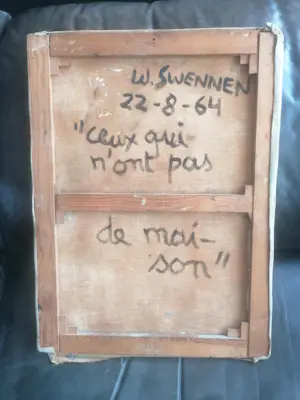 W. SWENNEN
22-8-64
"ceux qui
n'ont pas
de mai-
son"